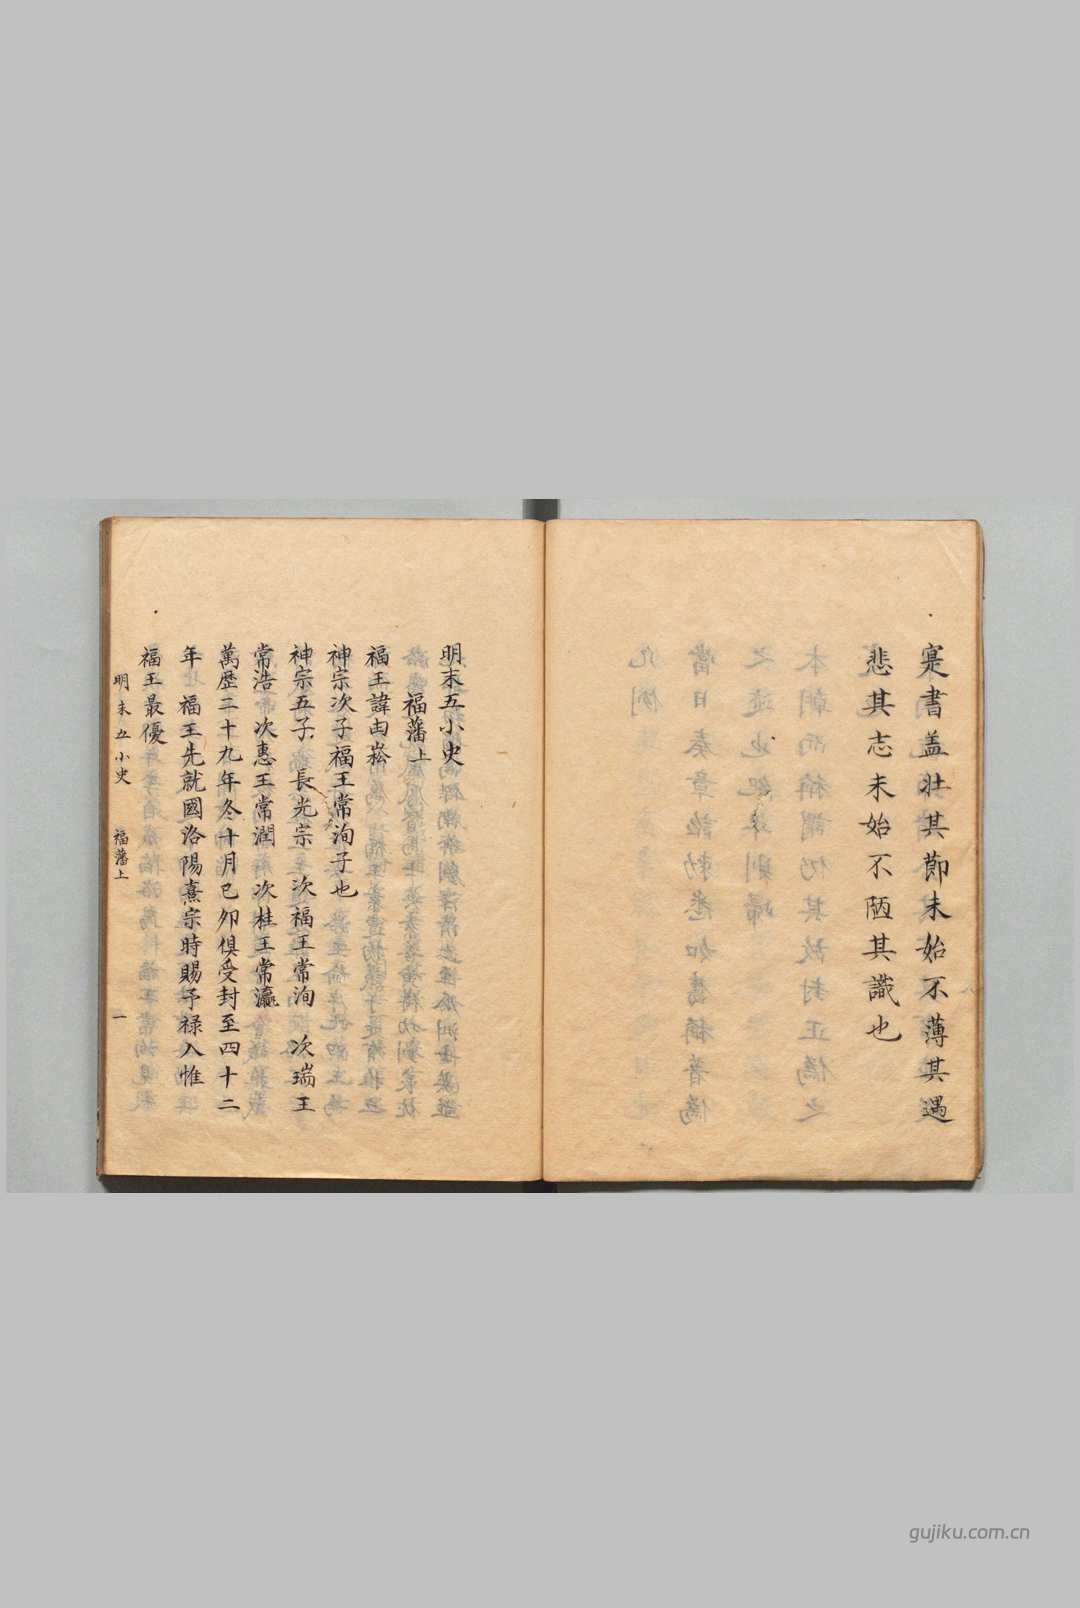 寔書蓋壯其節未始不薄其遇
悲其志未始不陋其識也
明末五小史
福藩上
福王諱由崧
神宗次子福王常洵子也
神宗五子長光宗次福王常洵 次瑞王
常浩次惠王常潤次桂王常瀛
萬歷二十九年冬十月己夘俱受封至四十二
年 福王先就國洛陽熹宗時賜予祿入惟
福王最優
明末五小史 福藩上 一
gujiku.com.cn